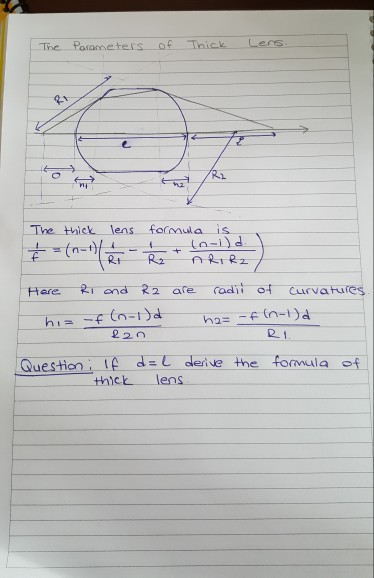 The Parameters of Thick Lens.
R1
e
R2
O
h1
h2
The thick lens formula is
1/f = (n-1)(1/R1 - 1/R2 + (n-1)d/nR1R2)
Here R1 and R2 are radii of curvatures.
h1 = -f(n-1)d/R2n h2 = -f(n-1)d/R1
Question: If d=l derive the formula of
thick lens